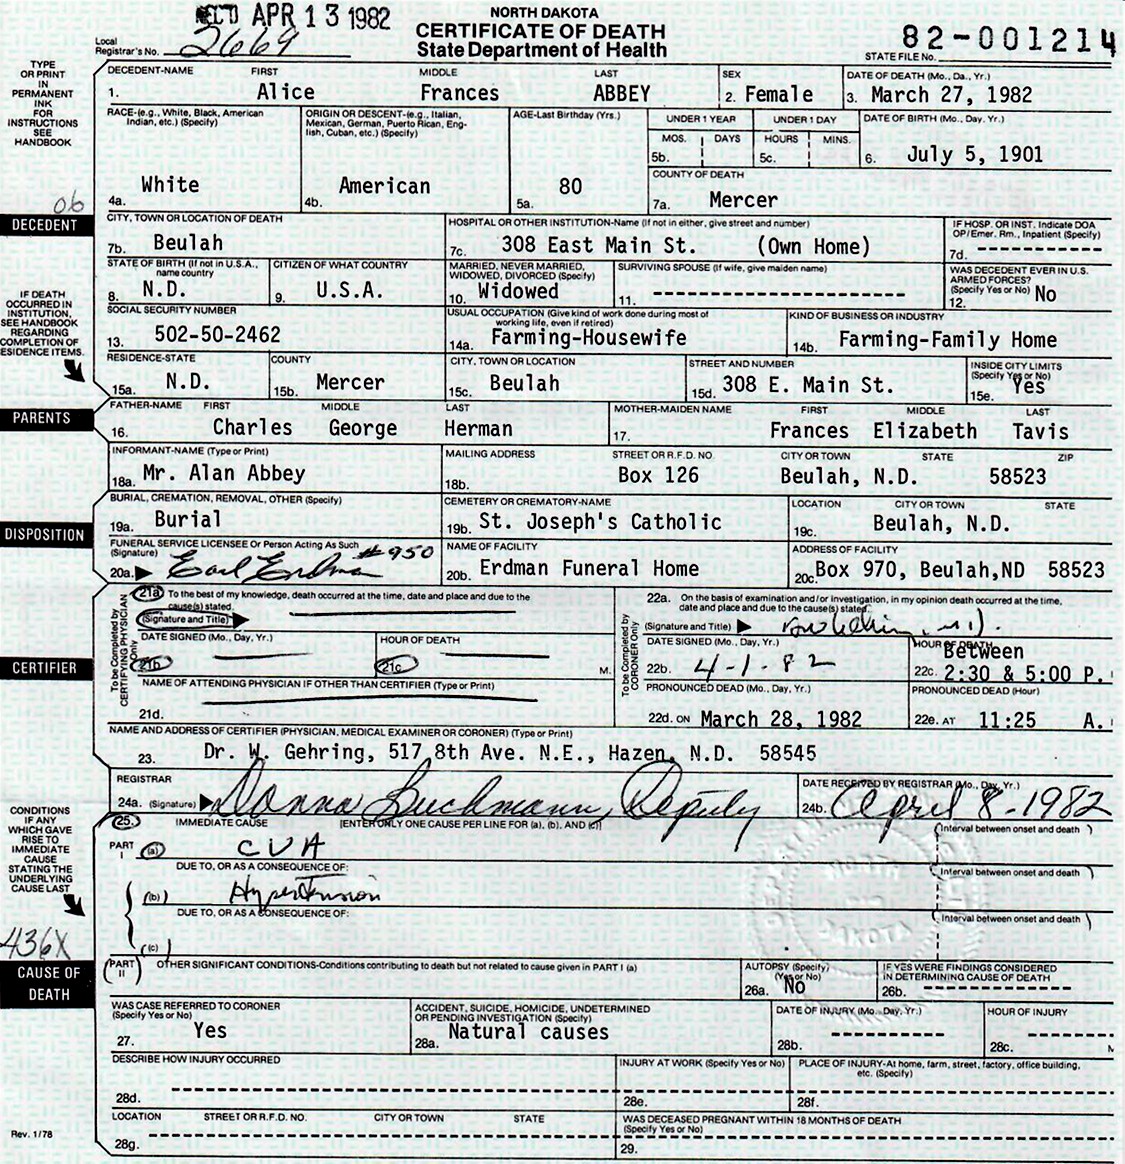 REC'D APR 13 1982
NORTH DAKOTA
CERTIFICATE OF DEATH
State Department of Health
Local Registrar's No. 2669
82-001214
STATE FILE No.
TYPE
OR PRINT
IN
PERMANENT
INK
FOR
INSTRUCTIONS
SEE
HANDBOOK
DECEDENT-NAME FIRST MIDDLE LAST
1. Alice Frances ABBEY
SEX
2. Female
DATE OF DEATH (Mo., Da., Yr.)
3. March 27, 1982
RACE-(e.g., White, Black, American
Indian, etc.) (Specify)
White
4a.
ORIGIN OR DESCENT-(e.g., Italian,
Mexican, German, Puerto Rican, Eng-
lish, Cuban, etc.) (Specify)
American
4b.
AGE-Last Birthday (Yrs.)
80
5a.
UNDER 1 YEAR
MOS. DAYS
5b.
UNDER 1 DAY
HOURS MINS.
5c.
DATE OF BIRTH (Mo., Day. Yr.)
6. July 5, 1901
COUNTY OF DEATH
7a. Mercer
06
DECEDENT
CITY, TOWN OR LOCATION OF DEATH
7b. Beulah
HOSPITAL OR OTHER INSTITUTION-Name (If not in either, give street and number)
7c. 308 East Main St. (Own Home)
IF HOSP. OR INST. Indicate DOA
OP/Emer. Rm., Inpatient (Specify)
7d.
IF DEATH
OCCURRED IN
INSTITUTION,
SEE HANDBOOK
REGARDING
COMPLETION OF
ESIDENCE ITEMS.
STATE OF BIRTH (If not in U.S.A.,
name country
8. N.D.
CITIZEN OF WHAT COUNTRY
9. U.S.A.
MARRIED, NEVER MARRIED,
WIDOWED, DIVORCED (Specify)
10. Widowed
SURVIVING SPOUSE (If wife, give maiden name)
11.
WAS DECEDENT EVER IN U.S.
ARMED FORCES?
(Specify Yes or No) No
12.
SOCIAL SECURITY NUMBER
13. 502-50-2462
USUAL OCCUPATION (Give kind of work done during most of
working life, even if retired)
14a. Farming-Housewife
KIND OF BUSINESS OR INDUSTRY
14b. Farming-Family Home
RESIDENCE-STATE
15a. N.D.
COUNTY
15b. Mercer
CITY, TOWN OR LOCATION
15c. Beulah
STREET AND NUMBER
15d. 308 E. Main St.
INSIDE CITY LIMITS
(Specify Yes or No)
15e. Yes
PARENTS
FATHER-NAME FIRST MIDDLE LAST
16. Charles George Herman
MOTHER-MAIDEN NAME FIRST MIDDLE LAST
17. Frances Elizabeth Tavis
INFORMANT-NAME (Type or Print)
18a. Mr. Alan Abbey
MAILING ADDRESS STREET OR R.F.D. NO. CITY OR TOWN STATE ZIP
18b. Box 126 Beulah, N.D. 58523
DISPOSITION
BURIAL, CREMATION, REMOVAL, OTHER (Specify)
19a. Burial
CEMETERY OR CREMATORY-NAME
19b. St. Joseph's Catholic
LOCATION CITY OR TOWN STATE
19c. Beulah, N.D.
FUNERAL SERVICE LICENSEE Or Person Acting As Such
(Signature)
20a. Earl Erdman #950
NAME OF FACILITY
20b. Erdman Funeral Home
ADDRESS OF FACILITY
20c. Box 970, Beulah,ND 58523
CERTIFIER
To be Completed by
CERTIFYING PHYSICIAN
Only
21a To the best of my knowledge, death occurred at the time, date and place and due to the
cause(s) stated.
(Signature and Title)
DATE SIGNED (Mo., Day, Yr.)
21b
HOUR OF DEATH
21c M.
NAME OF ATTENDING PHYSICIAN IF OTHER THAN CERTIFIER (Type or Print)
21d.
To be Completed by
CORONER Only
22a. On the basis of examination and/or investigation, in my opinion death occurred at the time,
date and place and due to the cause(s) stated.
(Signature and Title) M.D.
DATE SIGNED (Mo., Day, Yr.)
22b. 4-1-82
HOUR OF DEATH
Between
22c. 2:30 & 5:00 P.
PRONOUNCED DEAD (Mo., Day, Yr.)
22d. ON March 28, 1982
PRONOUNCED DEAD (Hour)
22e. AT 11:25 A.
NAME AND ADDRESS OF CERTIFIER (PHYSICIAN, MEDICAL EXAMINER OR CORONER) (Type or Print)
23. Dr. W. Gehring, 517 8th Ave. N.E., Hazen, N.D. 58545
REGISTRAR
24a. (Signature) Donna Buchmann, Deputy
DATE RECEIVED BY REGISTRAR (Mo., Day, Yr.)
24b. April 8-1982
CONDITIONS
IF ANY
WHICH GAVE
RISE TO
IMMEDIATE
CAUSE
STATING THE
UNDERLYING
CAUSE LAST
25. IMMEDIATE CAUSE [ENTER ONLY ONE CAUSE PER LINE FOR (a), (b), AND (c)]
Interval between onset and death
PART
I (a) CVA
DUE TO, OR AS A CONSEQUENCE OF:
Interval between onset and death
(b) Hypertension
DUE TO, OR AS A CONSEQUENCE OF:
Interval between onset and death
(c)
NORTH DAKOTA
436X
CAUSE OF
DEATH
PART
II OTHER SIGNIFICANT CONDITIONS-Conditions contributing to death but not related to cause given in PART I (a)
AUTOPSY (Specify)
(Yes or No)
26a. No
IF YES WERE FINDINGS CONSIDERED
IN DETERMINING CAUSE OF DEATH
26b.
WAS CASE REFERRED TO CORONER
(Specify Yes or No)
27. Yes
ACCIDENT, SUICIDE, HOMICIDE, UNDETERMINED
OR PENDING INVESTIGATION (Specify)
28a. Natural causes
DATE OF INJURY (Mo., Day, Yr.)
28b.
HOUR OF INJURY
28c. M
DESCRIBE HOW INJURY OCCURRED
28d.
INJURY AT WORK (Specify Yes or No)
28e.
PLACE OF INJURY-At home, farm, street, factory, office building,
etc. (Specify)
28f.
LOCATION STREET OR R.F.D. NO. CITY OR TOWN STATE
28g.
WAS DECEASED PREGNANT WITHIN 18 MONTHS OF DEATH
(Specify Yes or No)
29.
Rev. 1/78